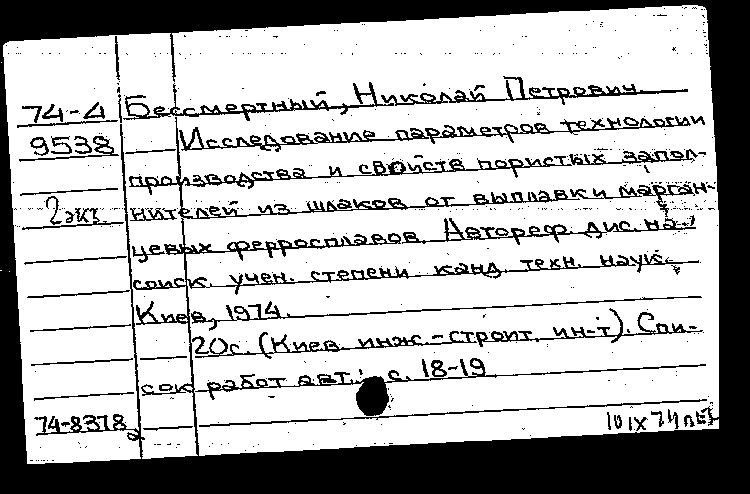 74-4 Бессмертный, Николай Петрович.
9538 Исследование параметров технологии
производства и свойств пористых запол-
2 экз. нителей из шлаков от выплавки марган-
цевых ферросплавов. Автореф. дис. на
соиск. учен. степени канд. техн. наук.
Киев, 1974.
20с. (Киев. инж.-строит. ин-т). Спи-
сок работ авт.: с. 18-19
74-8378
10 IX 74